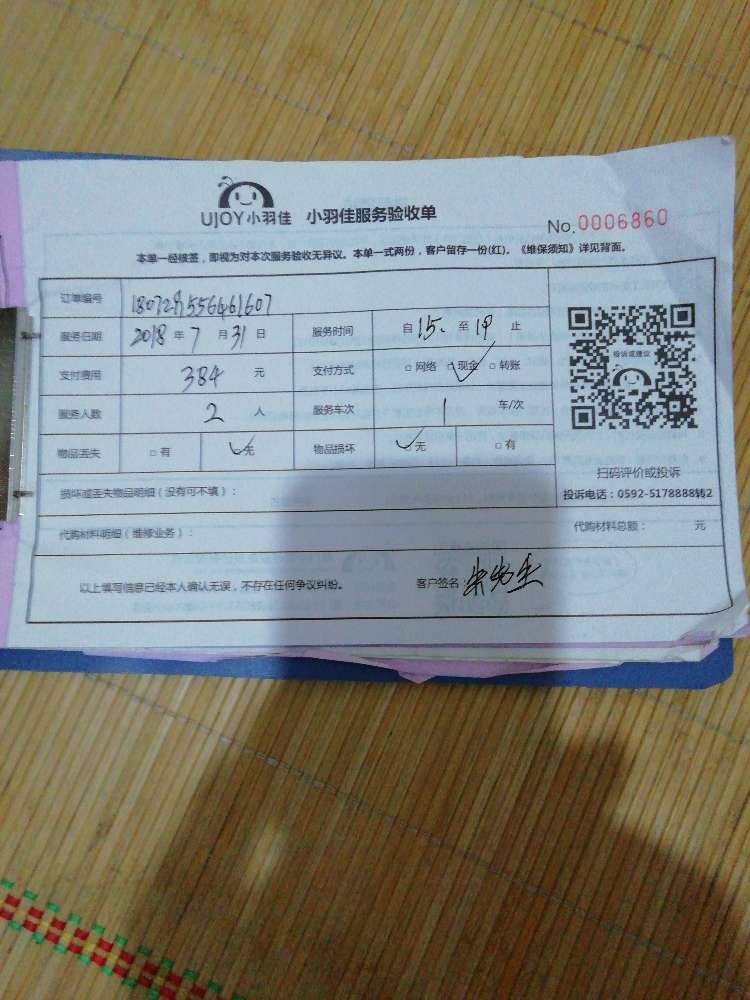 UJOY小羽佳 小羽佳服务验收单
No.0006860
本单一经核签，即视为对本次服务验收无异议。本单一式两份，客户留存一份(红)。《维保须知》详见背面。
订单编号
服务日期 2018年7月31日 服务时间 自15:至19止
支付费用 384元 支付方式 □网络 □现金 □转账
服务人数 2人 服务车次 1车/次
物品丢失 □有 □无 物品损坏 □无 □有
投诉或建议
扫码评价或投诉
投诉电话：0592-5178888转2
损坏或丢失物品明细（没有可不填）：
代购材料明细（维修业务）： 代购材料总额： 元
以上填写信息已经本人确认无误，不存在任何争议纠纷。 客户签名：朱先生